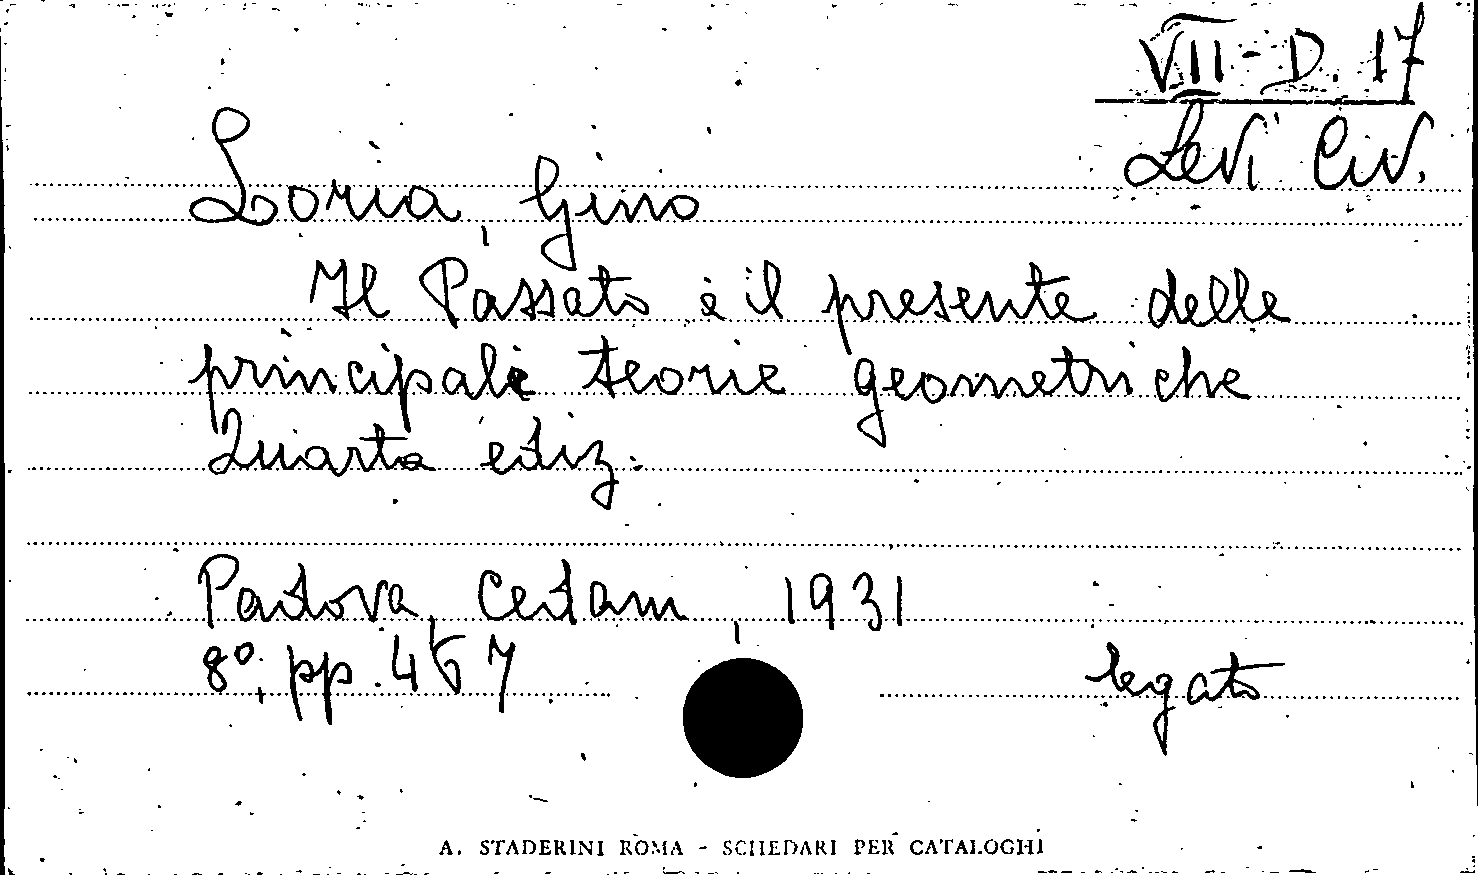 VII - D. 17
Levi Civ.
Loria, Gino
Il Passato e il presente delle
principali teorie geometriche
Quarta ediz.
Padova, Cedam, 1931
8°, pp. 467
legato
A. STADERINI ROMA - SCHEDARI PER CATALOGHI